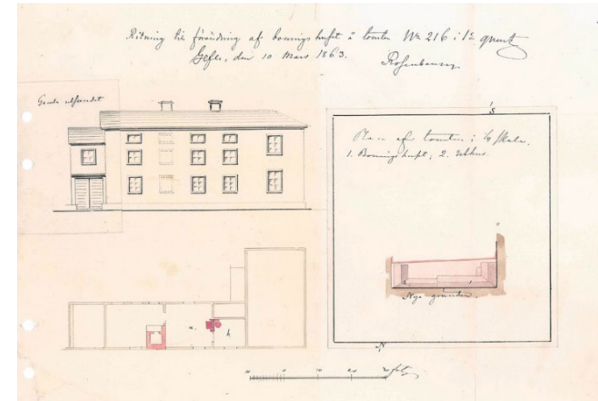 Ritning till förändring af boningshuset å tomten No 216 i 1a quart
Gefle, den 10 Mars 1863.
Gamla utseendet
Plan af tomten i 1/8 skala.
1. Boningshuset, 2. Uthus.
Nya gränden
S
N
a.
b.
fot